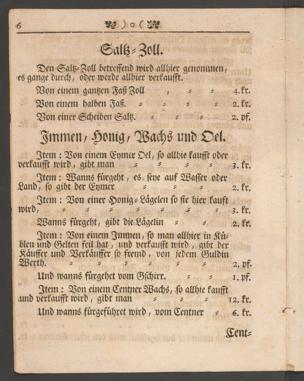 6
Saltz-Zoll.
Den Saltz-Zoll betreffend wird allhier genommen,
es gange durch, oder werde allhier verkaufft.
Von einem gantzen Faß Zoll , = = 4. kr.
Von einem halben Faß. = = = 2. kr.
Von einer Scheiben Saltz. = = = 2. pf.
Immen, Honig, Wachs und Oel.
Item: Von einem Eymer Oel, so allhie kaufft oder
verkaufft wird, gibt man = = = 3. kr.
Item: Wanns fürgeht, es seye auf Wasser oder
Land, so gibt der Eymer = = = 2. kr.
Item: Von einer Honig-Lägelen so sie hier kauft
wird, = = = = = 3. kr.
Wanns fürgeht, gibt die Lägelin = = 2. kr.
Item: Von einem Immen, so man allhier in Kü-
blen und Gelten feil hat, und verkaufft wird, gibt der
Käuffer und Verkäuffer so fremd, von jedem Guldin
Werth. = = = = = 2. pf.
Und wanns fürgehet vom Gschirr. = = 1. pf.
Item: Von einem Centner Wachs, so allhie kaufft
und verkaufft wird, gibt man = = 12. kr.
Und wanns fürgeführet wird, vom Centner = 6. kr.
Cent-